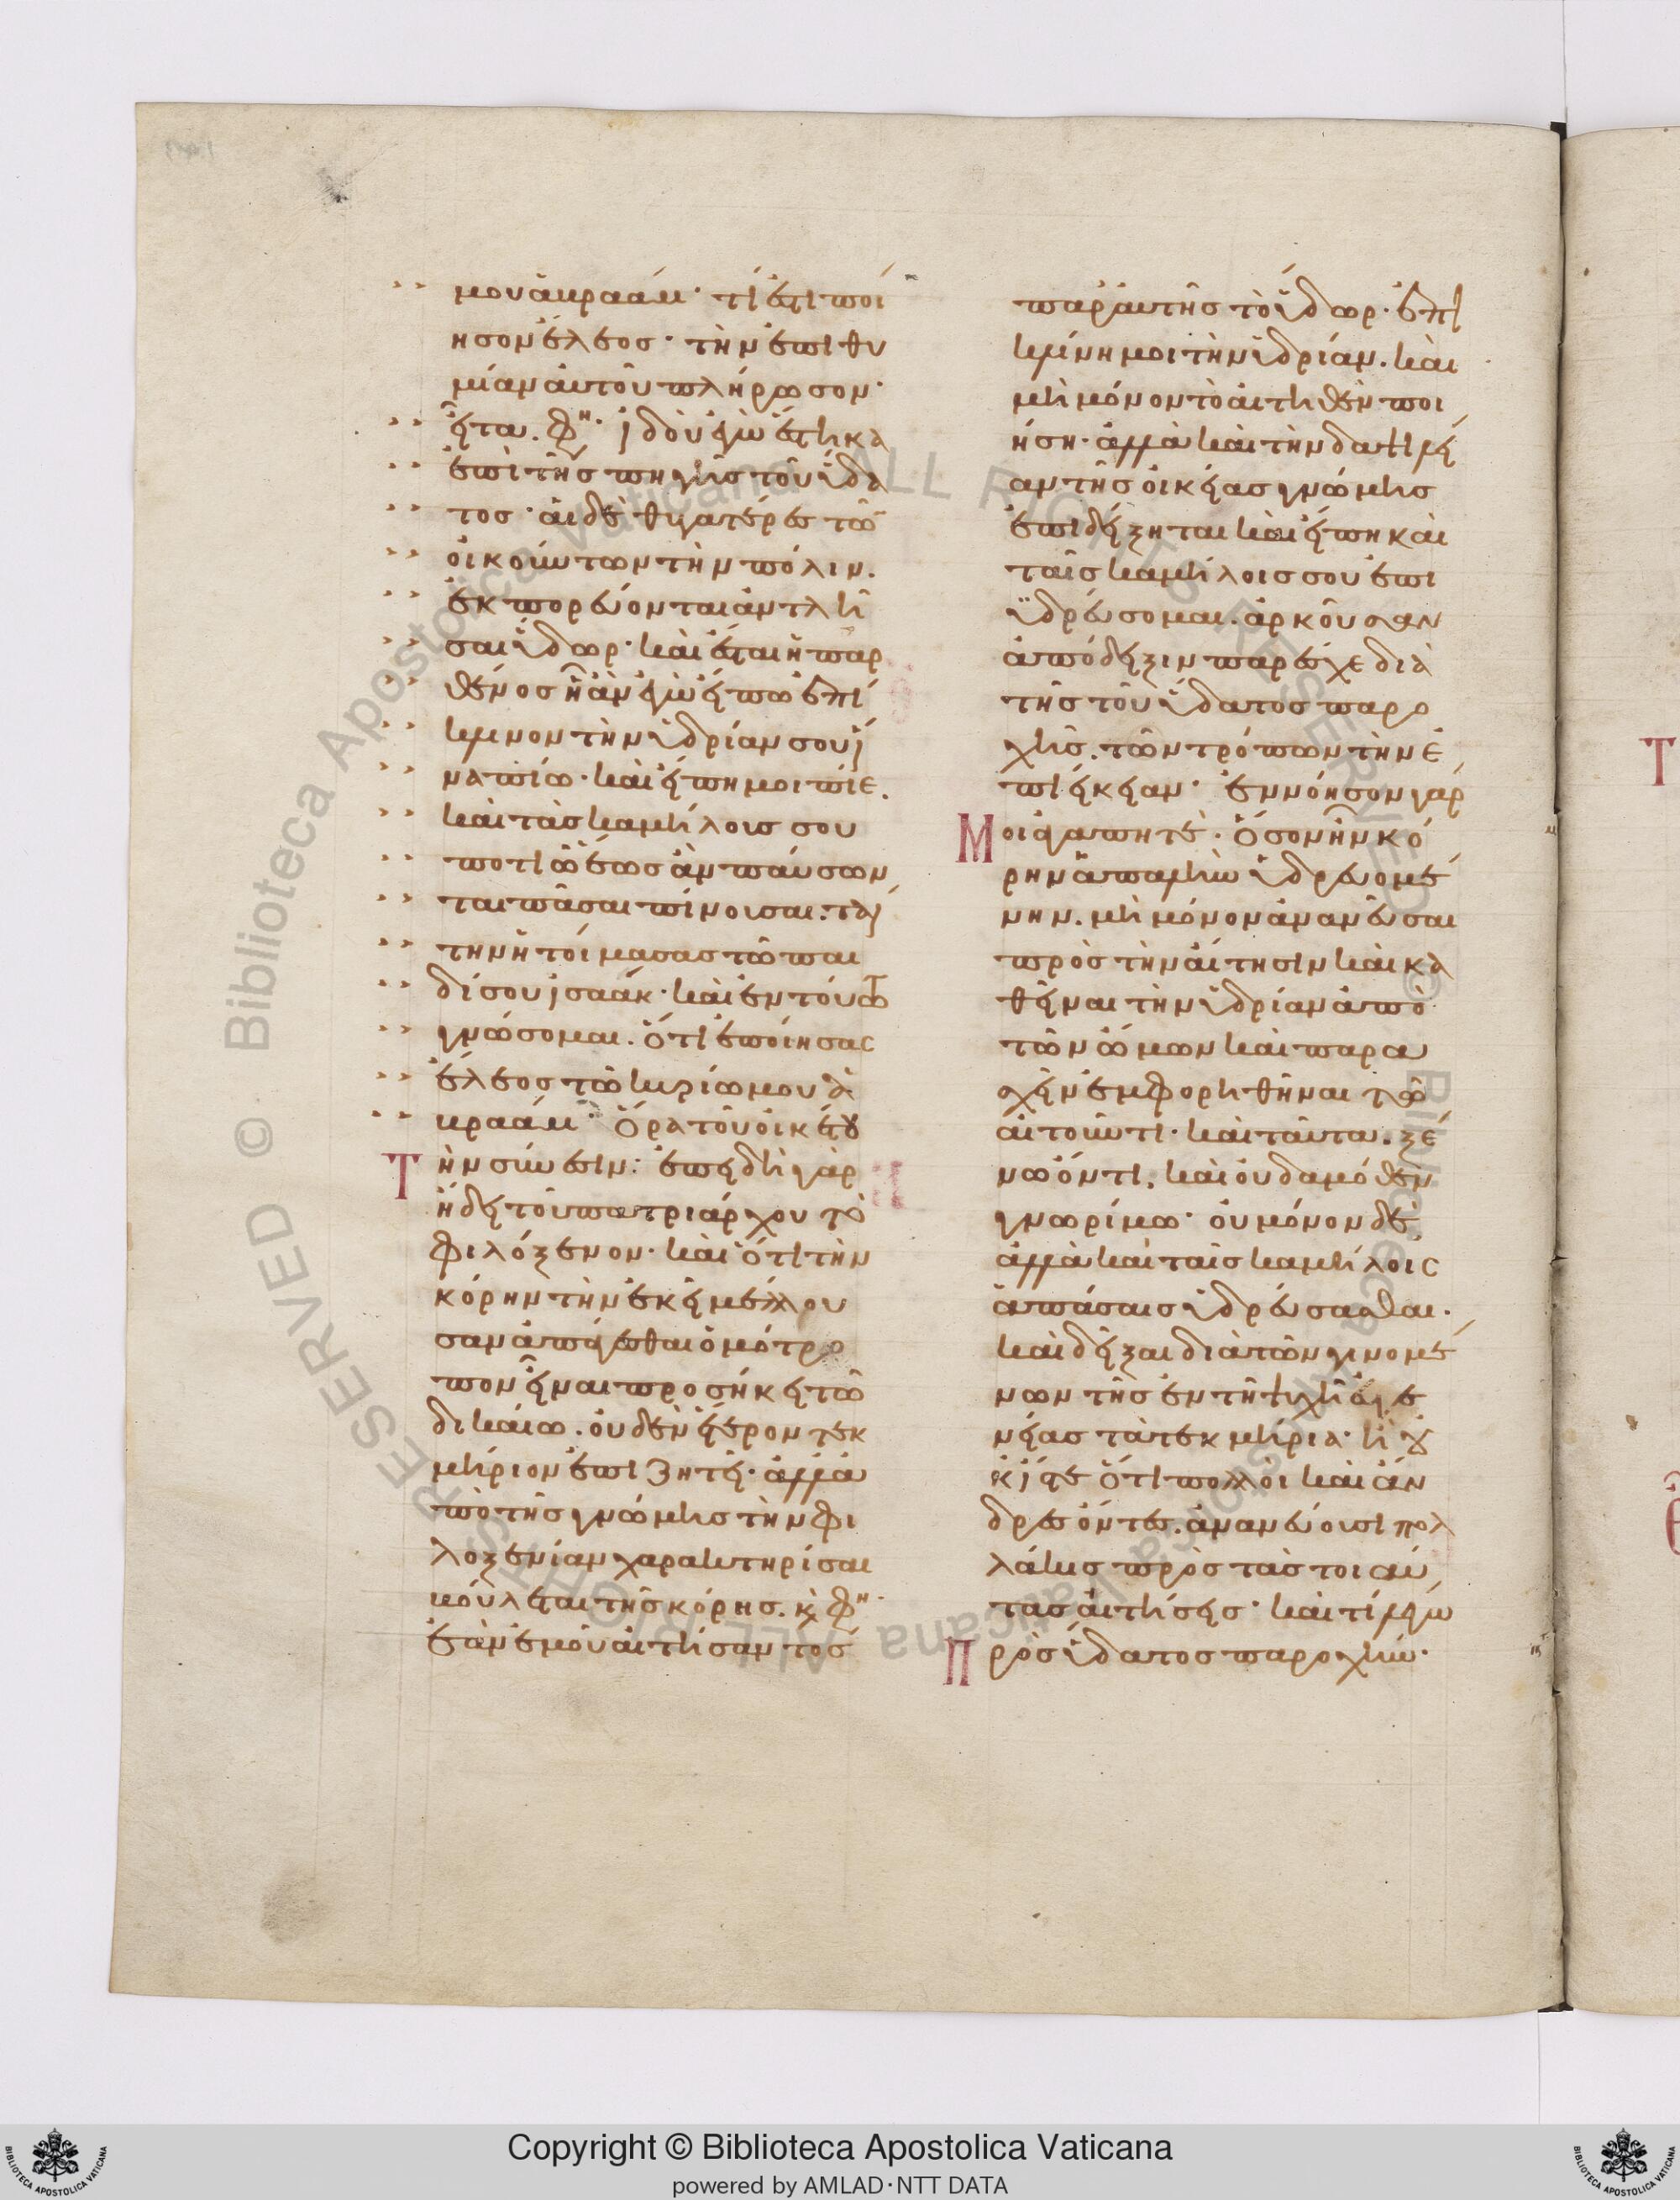 μου ἀβραάμ· τί ἐστι ποί
ησον ἔλεος· τὴν ἐπιθυ
μίαν αὐτοῦ πλήρωσον·
εἶτα φη· ἰδοὺ ἐγὼ ἕστηκα
ἐπὶ τῆς πηγῆς τοῦ ὕδα
τος· αἱ δὲ θυγατέρες τῶ
οἰκούντων τὴν πόλιν.
ἐκπορεύονται ἀντλῆ
σαι ὕδωρ· καὶ ἔσται ἡ παρ
θένος ἣ ἂν ἐγὼ εἴπω ἐπί
κλινον τὴν ὑδρίαν σου ἵ
να πίω· καὶ εἴπη μοι πίε.
καὶ τὰς καμήλους σου
ποτιῶ ἕως ἂν παύσων
ται πᾶσαι πίνουσαι. ταύ
την ἡτοίμασας τῶ παι
δί σου ἰσαάκ· καὶ ἐν τούτω
γνώσομαι. ὅτι ἐποίησας
ἔλεος τῶ κυρίω μου ἀ
βραάμ· ὅρα τοῦ οἰκέτου
Τὴν σύνεσιν· ἐπειδὴ γὰρ
ἤδει τοῦ πατριάρχου τὸ
φιλόξενον· καὶ ὅτι τὴν
κόρην τὴν ἐκεῖ μέλλου
σαν ἀπάγεσθαι ὁμότρο
πον εἶναι προσήκει τῶ
δικαίω. οὐδὲν ἕτερον τεκ
μήριον ἐπιζητεῖ· ἀλλὰ
πὸ τῆς γνώμης τὴν φι
λοξενίαν χαρακτηρίσαι
βούλεται τῆς κόρης. κ φη·
ἐὰν ἐμοῦ αἰτήσαντος
παρ αὐτῆς τὸ ὕδωρ· ἐπι
κλίνη μοι τὴν ὑδρίαν. καὶ
μὴ μόνον τὸ αἰτηθὲν ποι
ήση· ἀλλὰ καὶ τὴν δαψίλει
αν τῆς οἰκείας γνώμης
ἐπιδείξηται καὶ εἴπη καὶ
ταῖς καμήλοις σου ἐπι
ὑδρεύσομαι. ἀρκοῦσαν
ἀπόδειξιν παρέχει διὰ
τῆς τοῦ ὕδατος παρο
χῆς. τῶν τρόπων τὴν ἐ
πιείκειαν· ἐννόησον γάρ
Μοι ἀγαπητέ· ὅσον ἦν κό
ρην ἁπαλὴν ὑδρευομέ
νην. μὴ μόνον ἀνανεῦσαι
πρὸς τὴν αἴτησιν καὶ κα
θεῖναι τὴν ὑδρίαν ἀπὸ
τῶν ὤμων καὶ παρα
σχεῖν ἐμφορηθῆναι τῶ
αἰτοῦντι· καὶ ταῦτα. ξέ
νω ὄντι. καὶ οὐδαμόθεν
γνωρίμω· οὐ μόνον δὲ
ἀλλὰ καὶ ταῖς καμήλοις
ἁπάσαις ὑδρεύσασθαι.
καὶ δεῖξαι διὰ τῶν γινομέ
νων τῆς ἐν τῆ ψυχῆ εὐγε
νείας τὰ τεκμήρια· ἢ οὐ
κ ἴστε ὅτι πολλοὶ καὶ ἄν
δρες ὄντες. ἀνανεύουσι πολ
λάκις πρὸς τὰς τοιαύ
τας αἰτήσεις· καὶ τί λέγω
Πρὸς ὕδατος παροχήν·
Copyright © Biblioteca Apostolica Vaticana
powered by AMLAD·NTT DATA